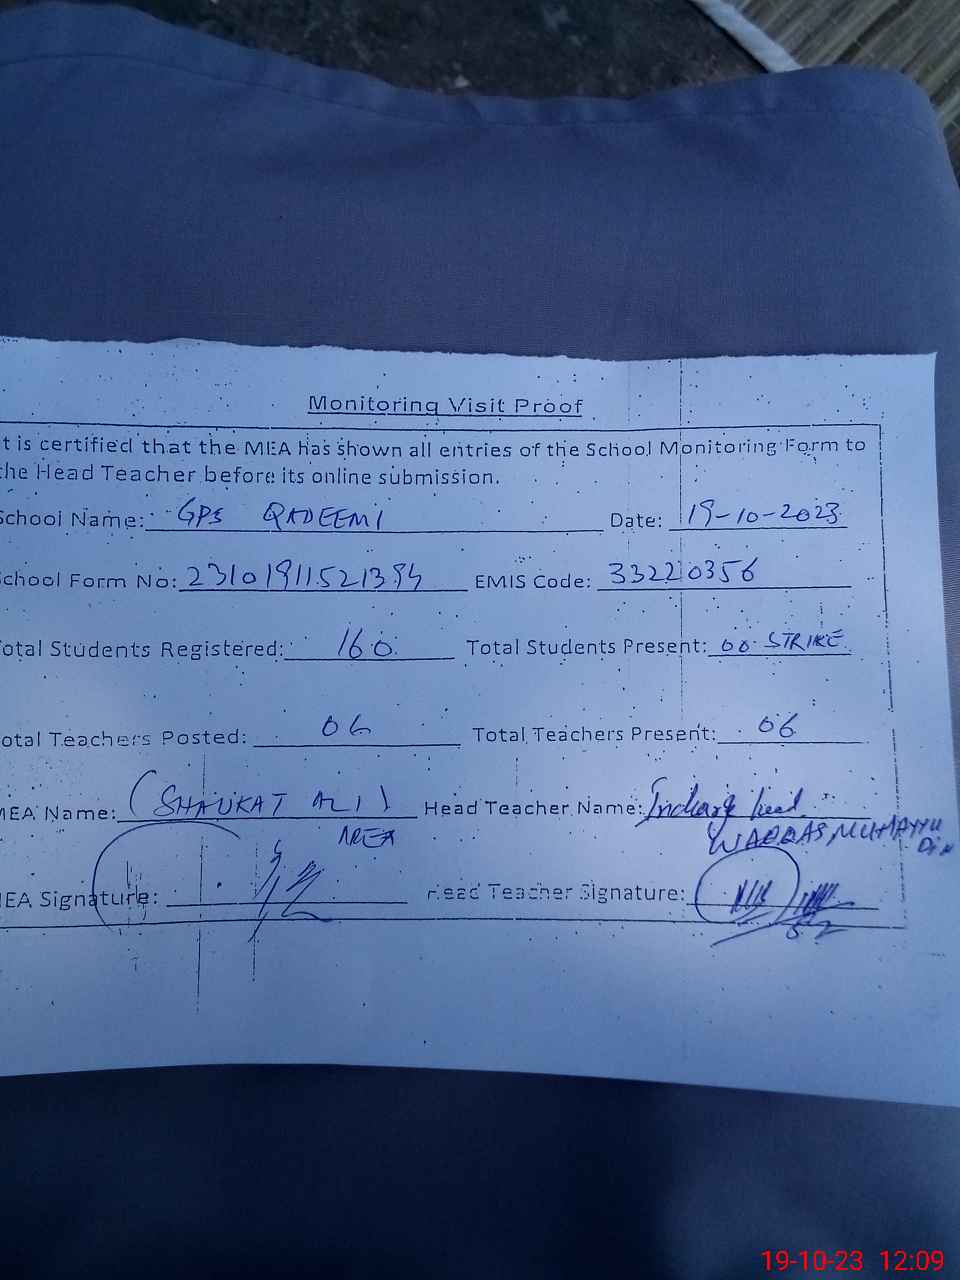 Monitoring Visit Proof
t is certified that the MEA has shown all entries of the School Monitoring Form to
the Head Teacher before its online submission.
School Name: GPS QADEEMI Date: 19-10-2023
School Form No: EMIS Code: 33220356
otal Students Registered: 160 Total Students Present: 00 STRIKE
otal Teachers Posted: 06 Total Teachers Present: 06
MEA Name: (SHAUKAT ALI) Head Teacher Name: Incharge Head
AREA
EA Signature: Head Teacher Signature:
19-10-23 12:09